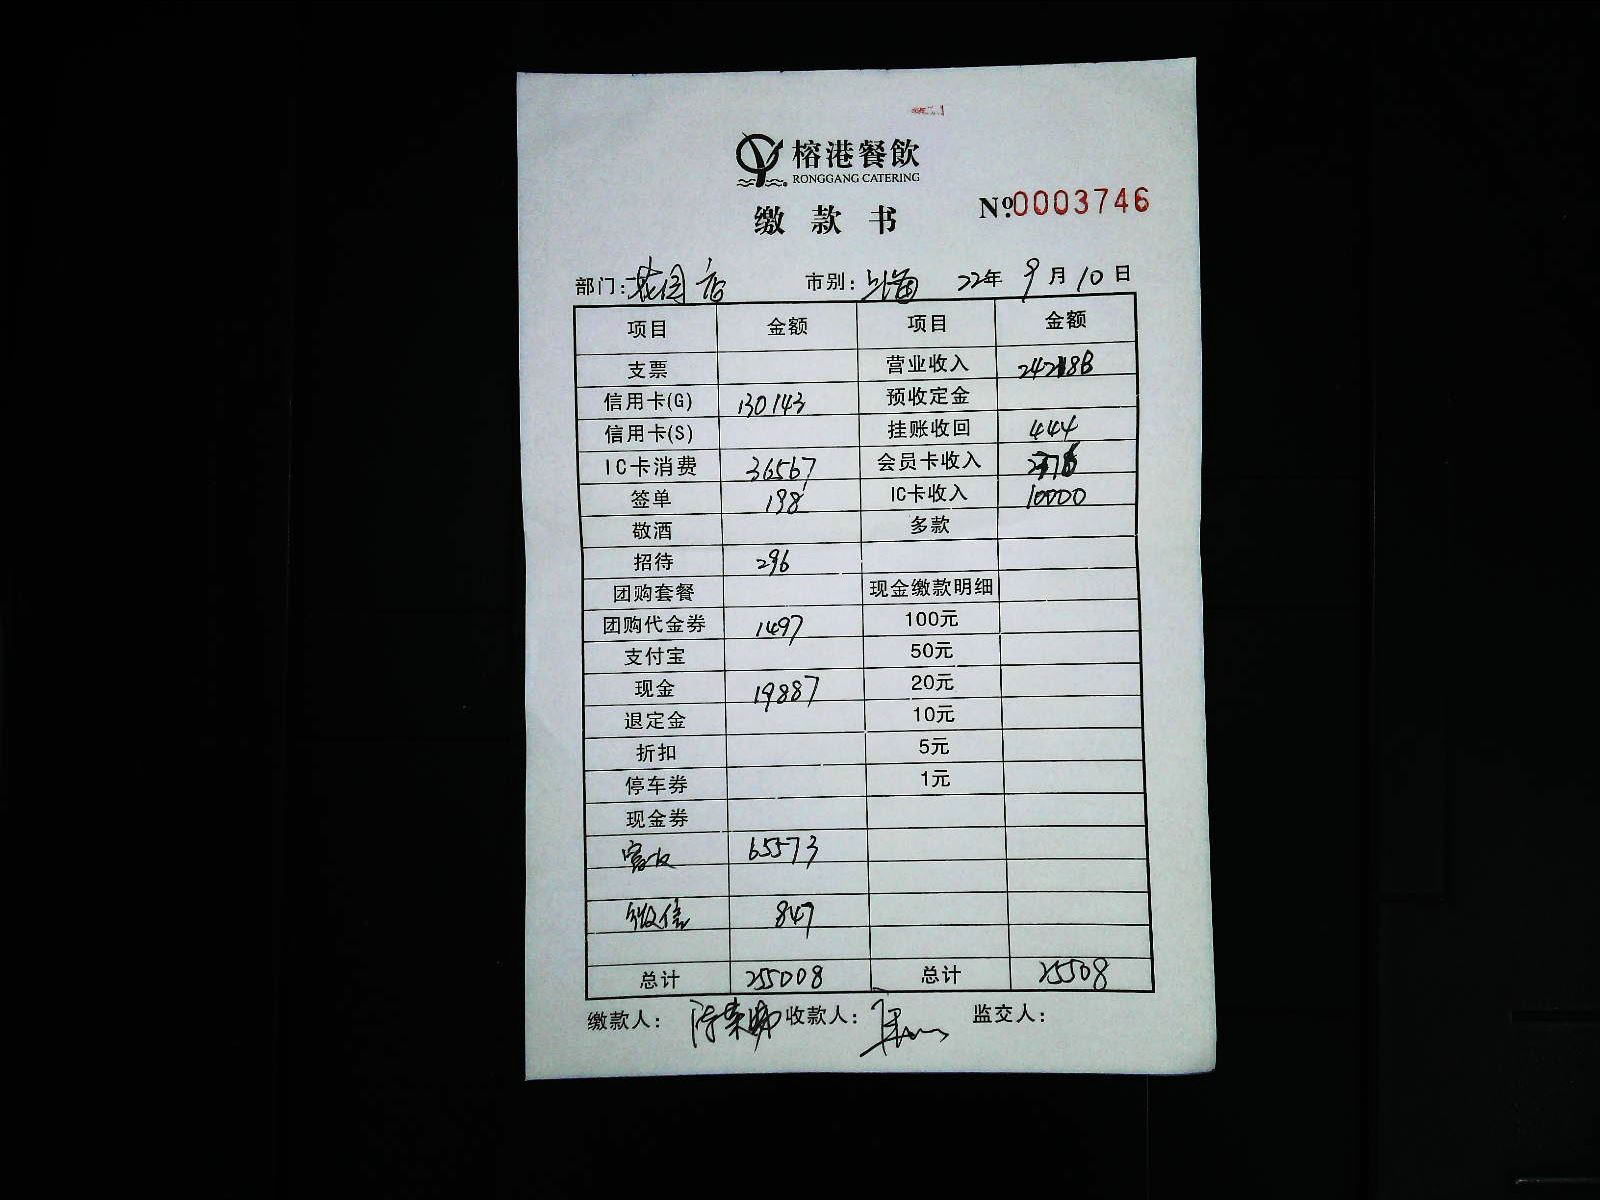 榕港餐飲
RONGGANG CATERING
缴款书 Nº:0003746
部门:花园店 市别:上海 22年 9月10日
项目 金额 项目 金额
支票 营业收入
信用卡(G) 130143 预收定金
信用卡(S) 挂账收回 444
IC卡消费 36567 会员卡收入
签单 198 IC卡收入 10000
敬酒 多款
招待 296
团购套餐 现金缴款明细
团购代金券 1497 100元
支付宝 50元
现金 19887 20元
退定金 10元
折扣 5元
停车券 1元
现金券
65573
微信 847
总计 255008 总计 25508
缴款人: 收款人: 监交人: